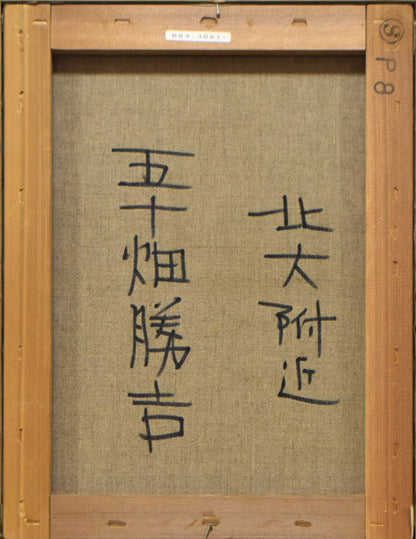 北大附近
五十畑勝吉
Ⓢ P8